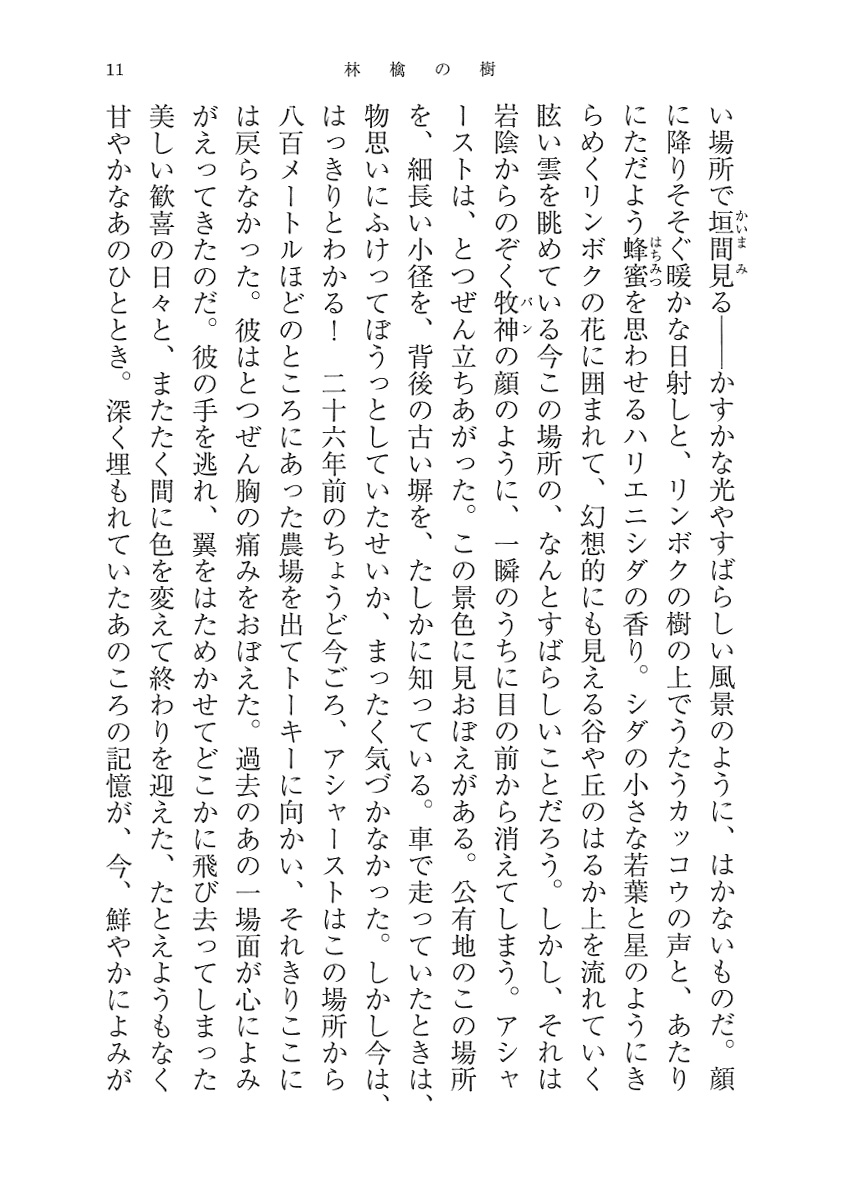 11
林檎の樹
い場所で垣間見る――かすかな光やすばらしい風景のように、はかないものだ。顔
に降りそそぐ暖かな日射しと、リンボクの樹の上でうたうカッコウの声と、あたり
にただよう蜂蜜を思わせるハリエニシダの香り。シダの小さな若葉と星のようにき
らめくリンボクの花に囲まれて、幻想的にも見える谷や丘のはるか上を流れていく
眩い雲を眺めている今この場所の、なんとすばらしいことだろう。しかし、それは
岩陰からのぞく牧神の顔のように、一瞬のうちに目の前から消えてしまう。アシャ
ーストは、とつぜん立ちあがった。この景色に見おぼえがある。公有地のこの場所
を、細長い小径を、背後の古い塀を、たしかに知っている。車で走っていたときは、
物思いにふけってぼうっとしていたせいか、まったく気づかなかった。しかし今は、
はっきりとわかる！　二十六年前のちょうど今ごろ、アシャーストはこの場所から
八百メートルほどのところにあった農場を出てトーキーに向かい、それきりここに
は戻らなかった。彼はとつぜん胸の痛みをおぼえた。過去のあの一場面が心によみ
がえってきたのだ。彼の手を逃れ、翼をはためかせてどこかに飛び去ってしまった
美しい歓喜の日々と、またたく間に色を変えて終わりを迎えた、たとえようもなく
甘やかなあのひととき。深く埋もれていたあのころの記憶が、今、鮮やかによみが
かいまみ
はちみつ
パン